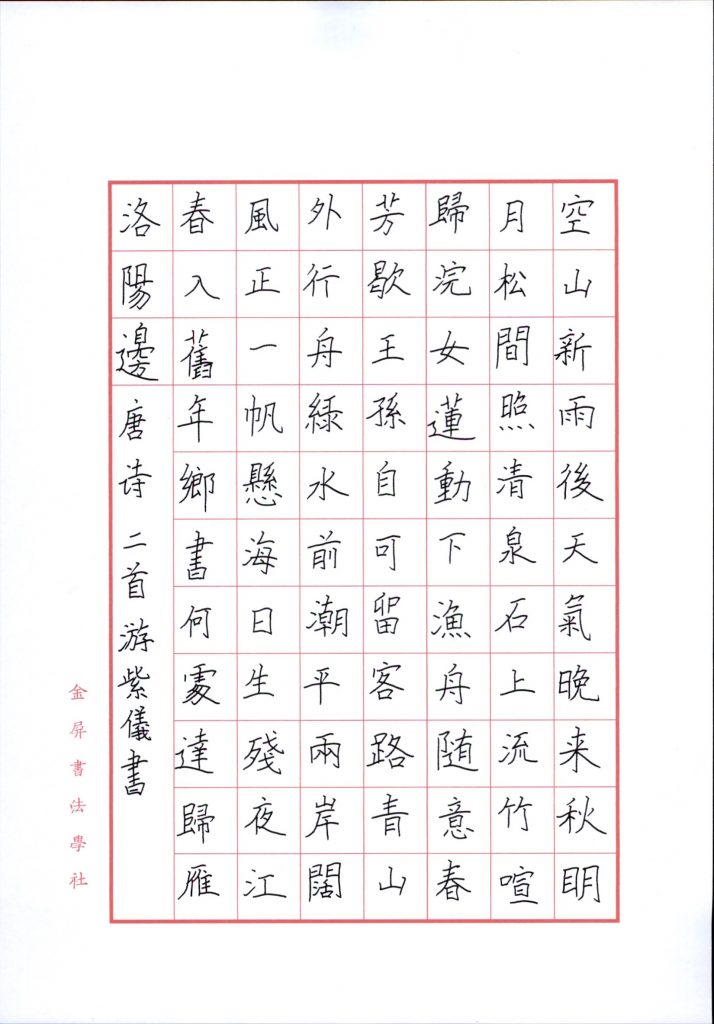 空山新雨後天氣晚来秋明
月松間照清泉石上流竹喧
歸浣女蓮動下漁舟随意春
芳歇王孫自可留客路青山
外行舟綠水前潮平兩岸闊
風正一帆懸海日生殘夜江
春入舊年鄉書何處達歸雁
洛陽邊唐诗二首游紫儀書
金屏書法學社